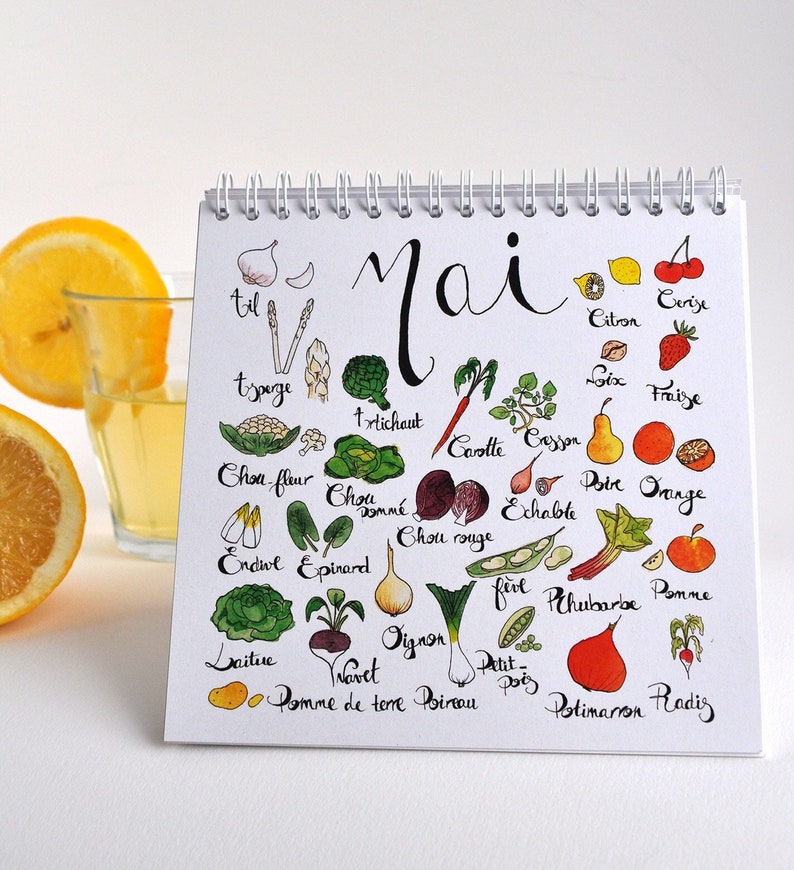 Mai
Ail
Citron
Cerise
Asperge
Artichaut
Noix
Fraise
Carotte
Cresson
Chou-fleur
Chou
pommé
Chou rouge
Echalote
Poire
Orange
Endive
Epinard
fève
Rhubarbe
Pomme
Laitue
Navet
Oignon
Petit-
pois
Pomme de terre
Poireau
Potimarron
Radis